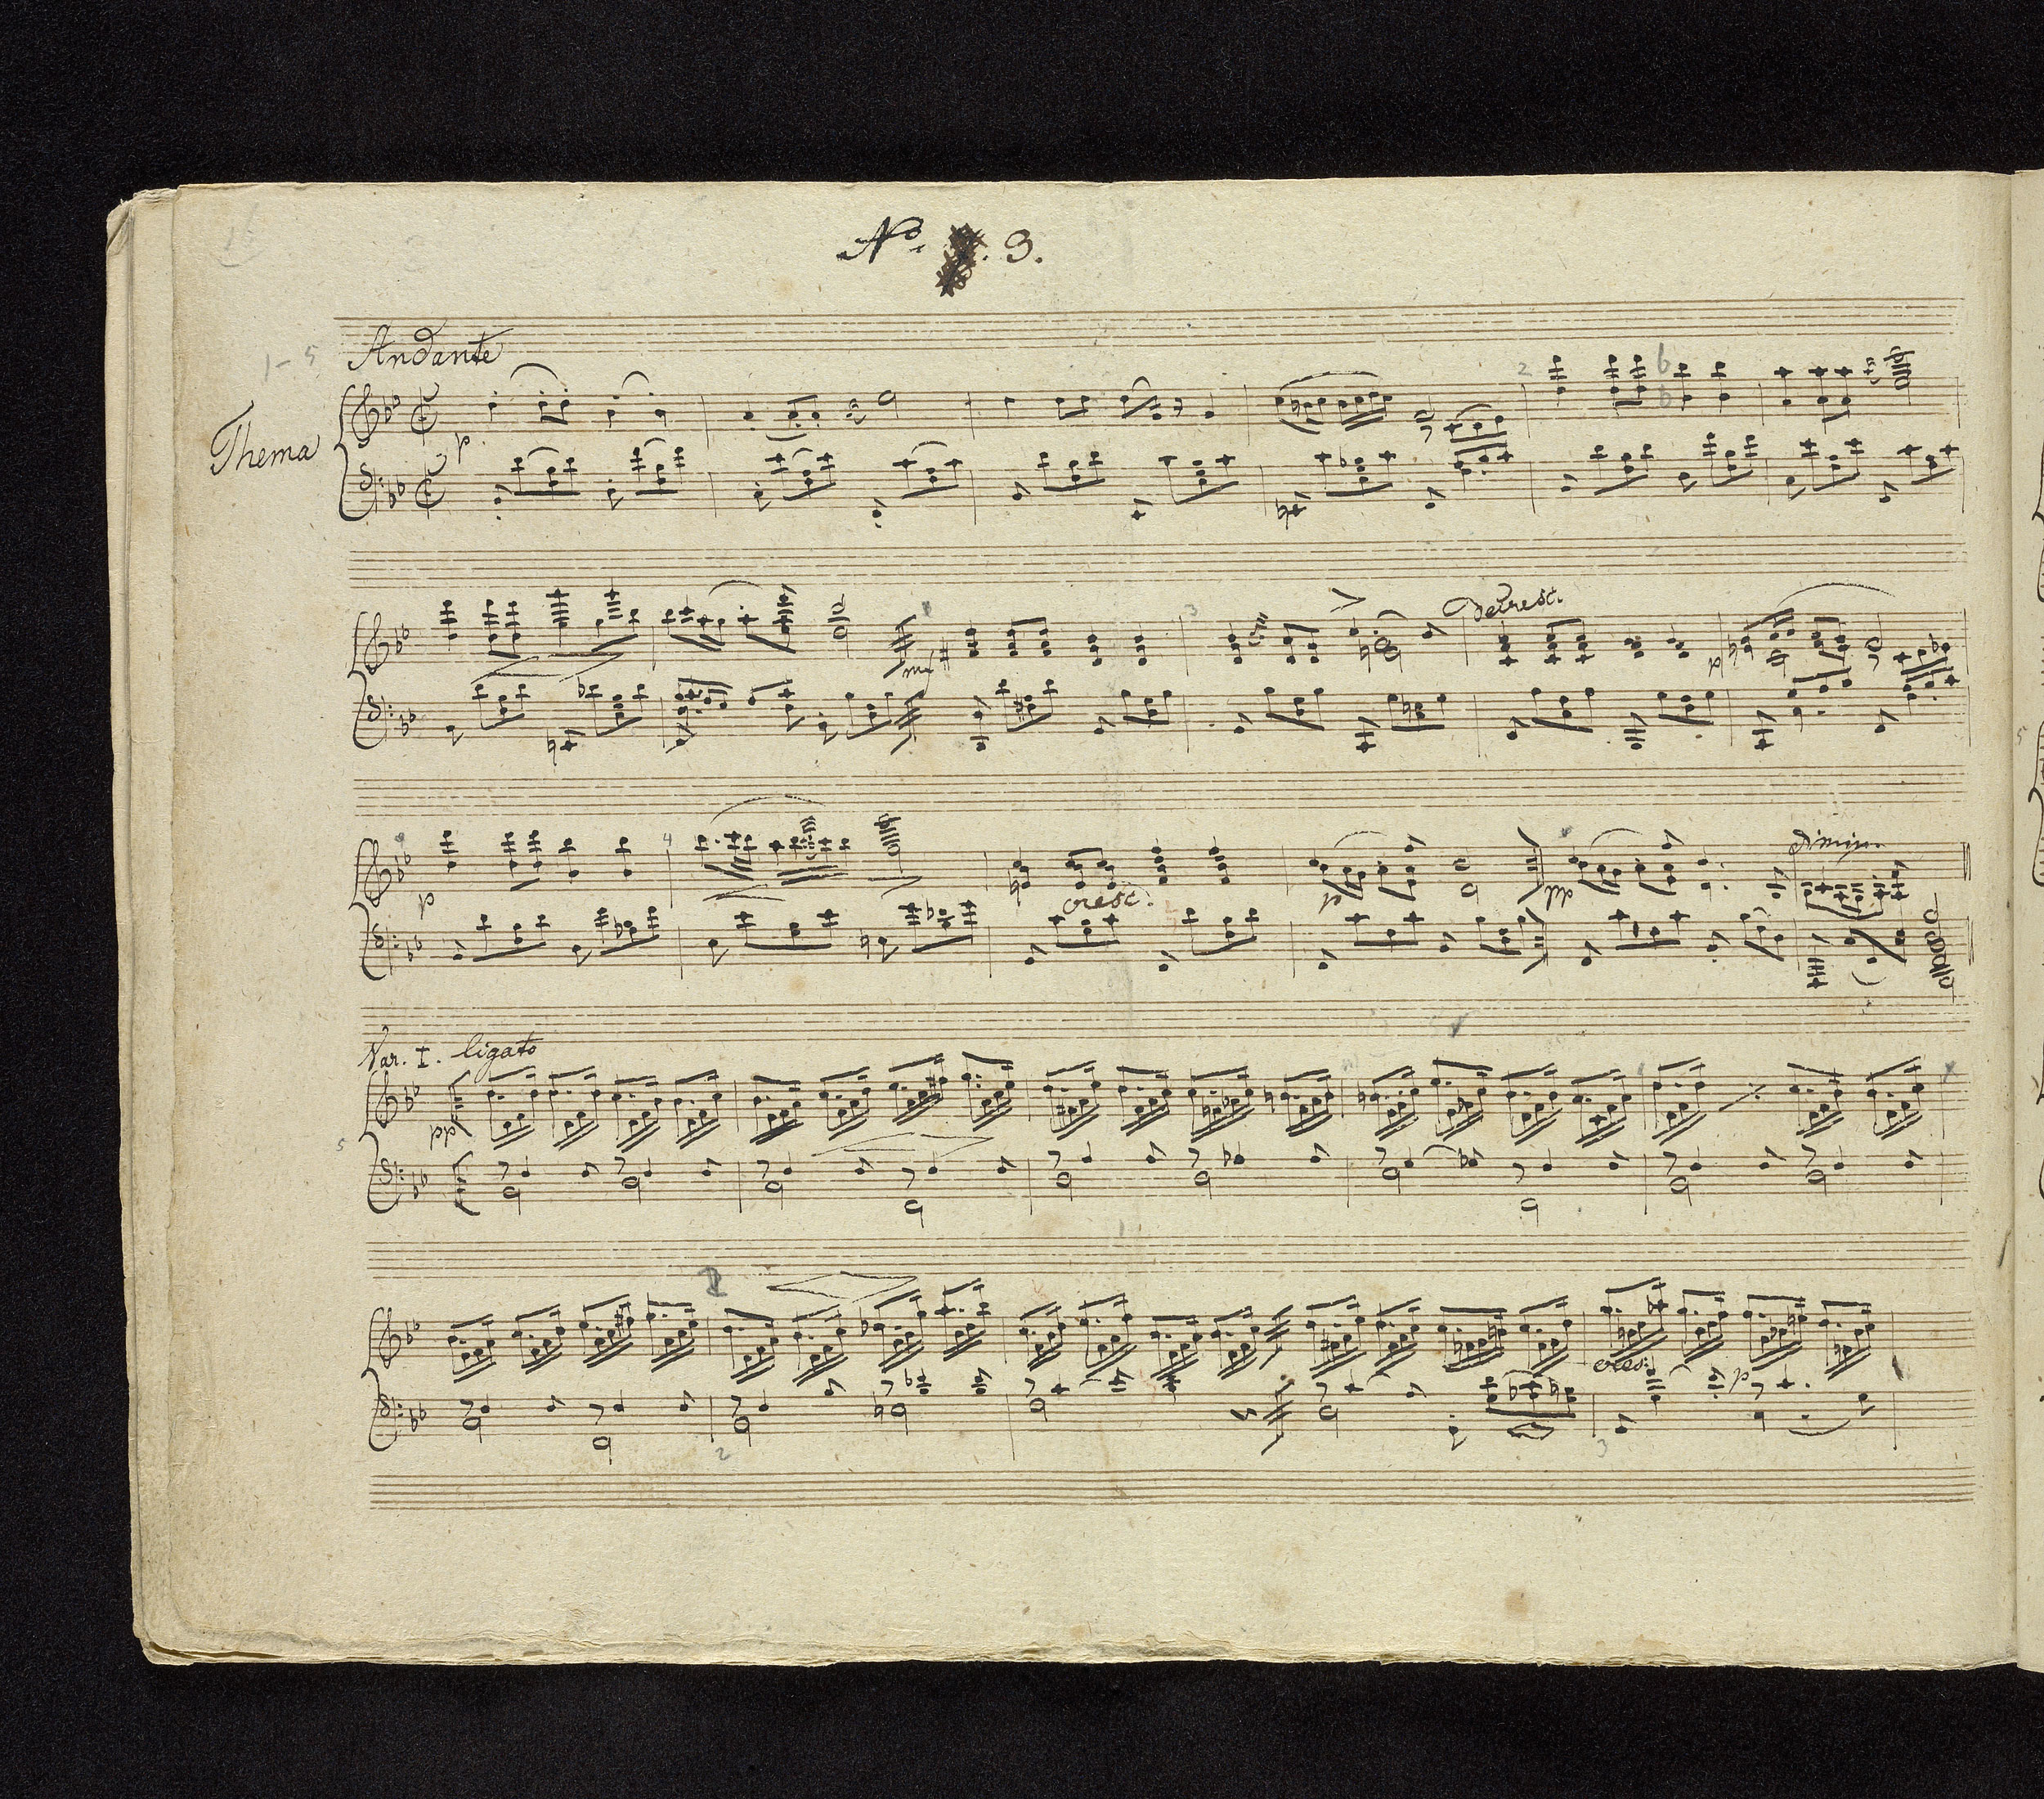 No. 3.
Andante
1-5
Thema
p.
2
b
b
mf
3
decresc.
p
p
4
cresc.
p
pp
dimin.
Var. I. ligato
pp
5
2
cres:
p
3